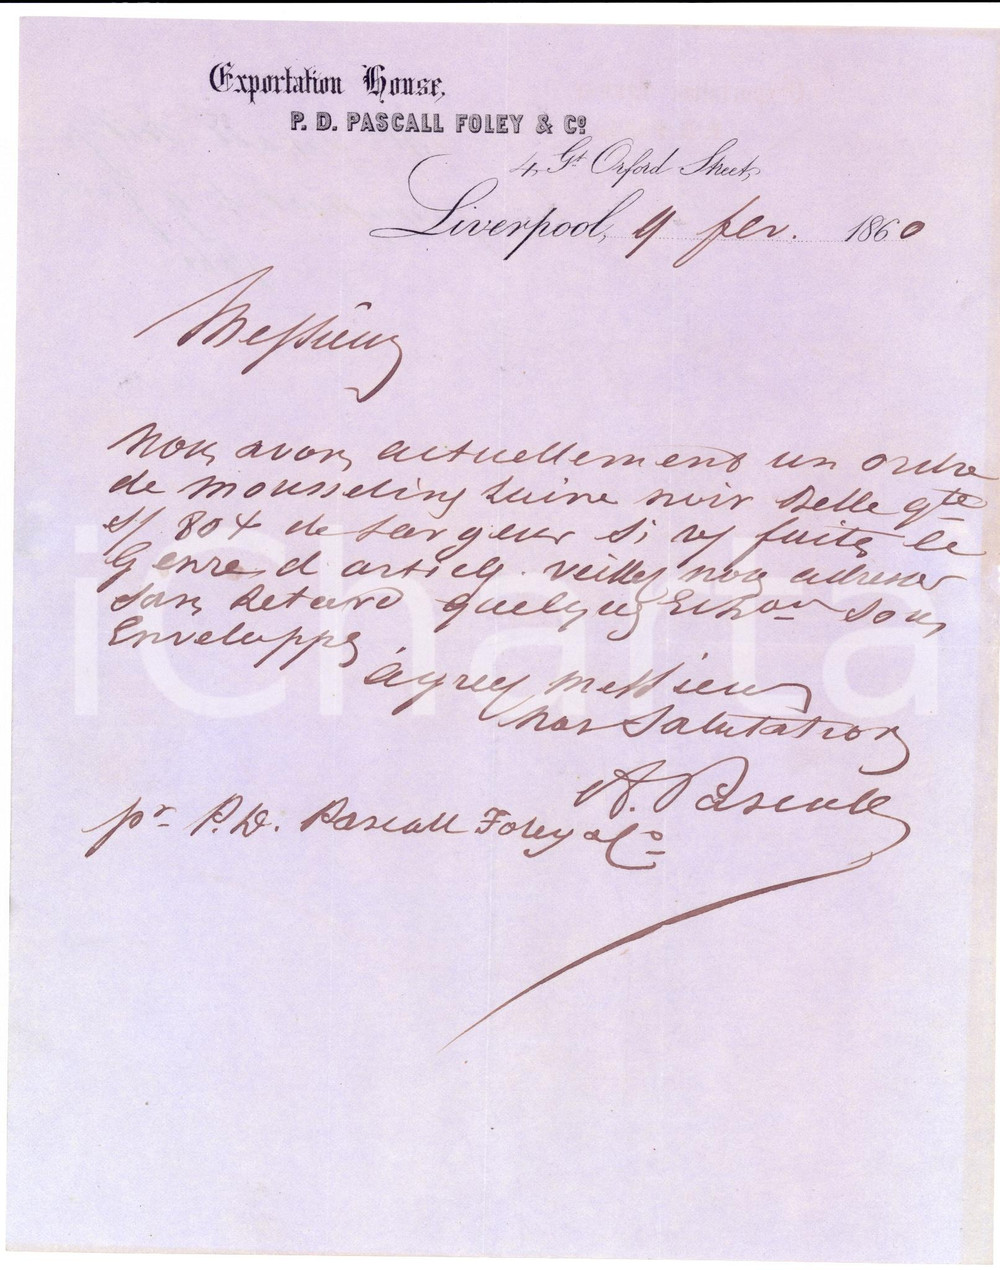 Exportation House,
P. D. PASCALL FOLEY & Cº
4, Gt Orford Street,
Liverpool, 9 fev. 1860
Messieurs
Nous avons actuellement un ordre
de mousseline laine noir belle qte
s/ 804 de largeur si vs faites ce
Genre d'article veuillez nous adresser
sans Retard quelques Echons sous
Enveloppe
agreez Messieurs
nos Salutations
A. Pascall
pr P. D. Pascall Foley & Co
iCharta